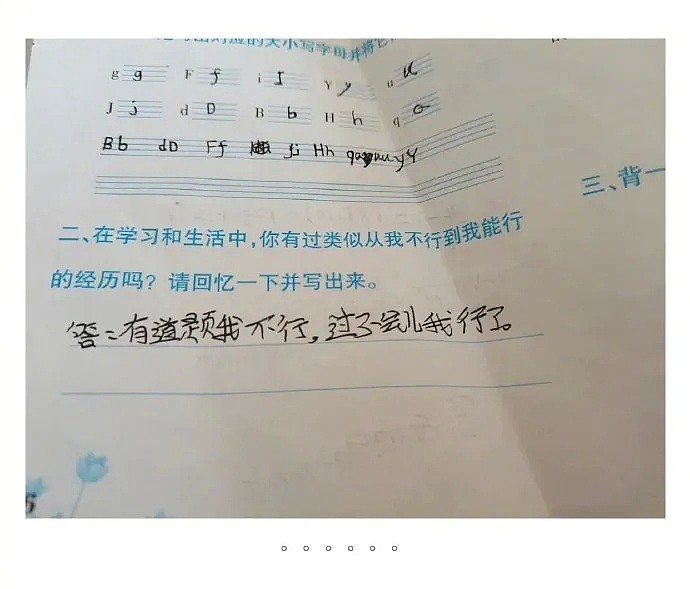 写出对应的大小写字母并将它
g g F f i I Y y u U
J j d D B b H h q Q
Bb dD Ff Jj Hh yY
三、背一
二、在学习和生活中,你有过类似从我不行到我能行
的经历吗?请回忆一下并写出来。
答:有道题我不行,过了会儿我行了。
6
。。。。。。